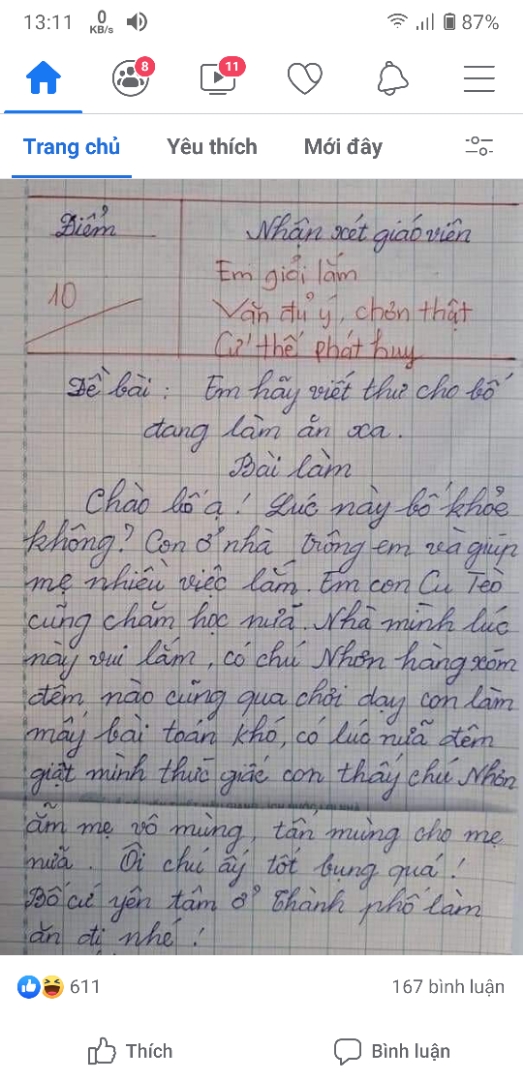 13:11 0 KB/s 87%
8 11
Trang chủ Yêu thích Mới đây
Điểm Nhận xét giáo viên
10 Em giỏi lắm
Văn đủ ý, chơn thật
Cứ thế phát huy
Đề bài: Em hãy viết thư cho bố
đang làm ăn xa.
Bài làm
Chào bố ạ! Lúc này bố khỏe
không? Con ở nhà trông em và giúp
mẹ nhiều việc lắm. Em con Cu Tèo
cũng chăm học nữa. Nhà mình lúc
này vui lắm, có chú Nhơn hàng xóm
đêm nào cũng qua chơi dạy con làm
mấy bài toán khó, có lúc nửa đêm
giật mình thức giấc con thấy chú Nhơn
ẵm mẹ vô mùng, tấn mùng cho mẹ
nữa. Ôi chú ấy tốt bụng quá!
Bố cứ yên tâm ở thành phố làm
ăn đi nhé!
611 167 bình luận
Thích Bình luận